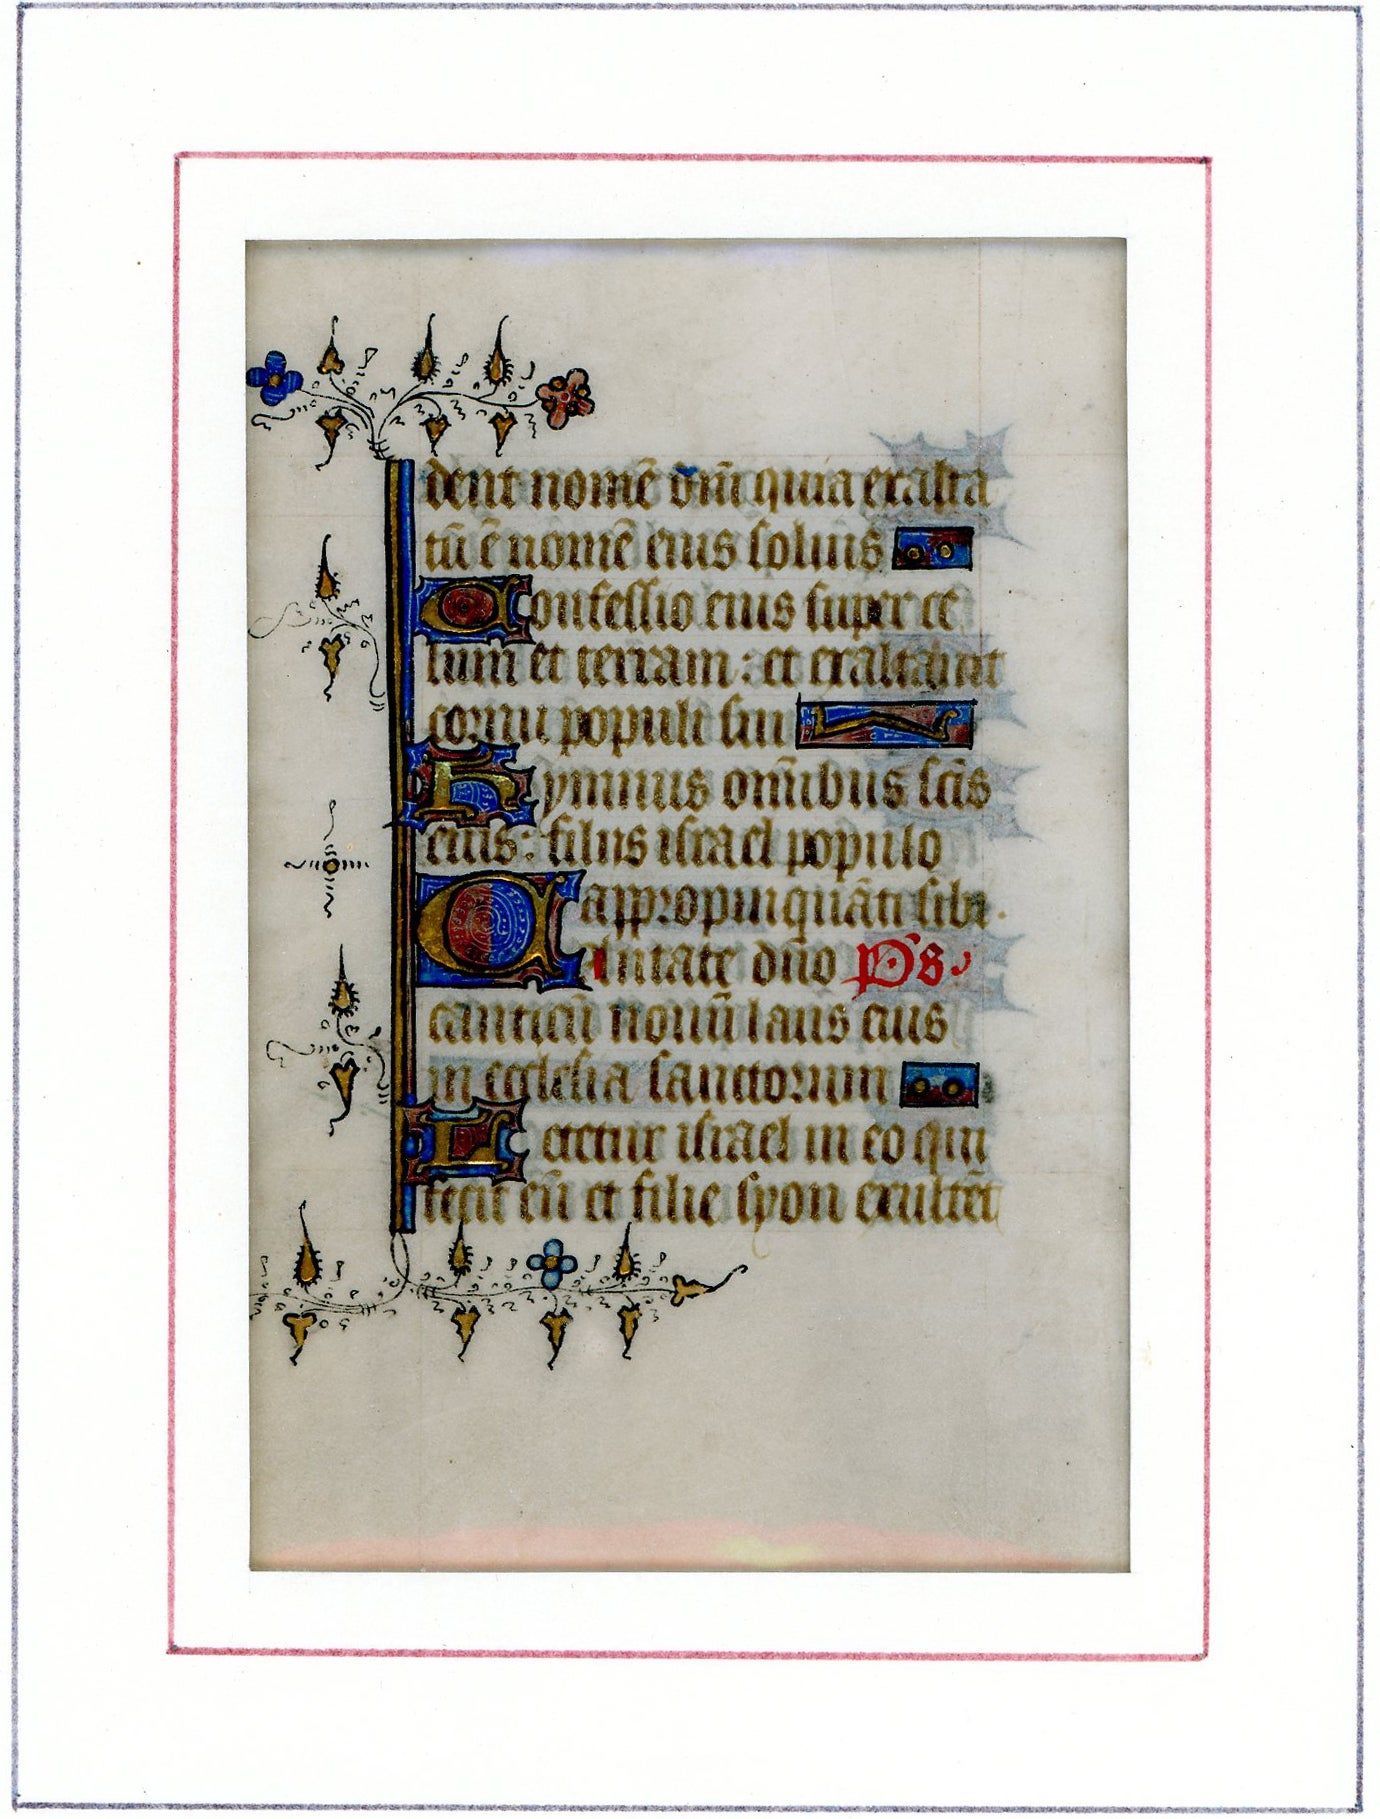 dent nomē dñi quia exalta
tū ē nomē eius solius
Confessio eius super ce
lum et terram: et exaltabit
cornu populi sui
Hymnus omībus scīs
eius: filiis israel populo
appropinquāti sibi.
Cantate dño Ps
canticū nouū laus eius
in ecclesia sanctorum
Letetur israel in eo qui
fecit eū et filie syon exultēt